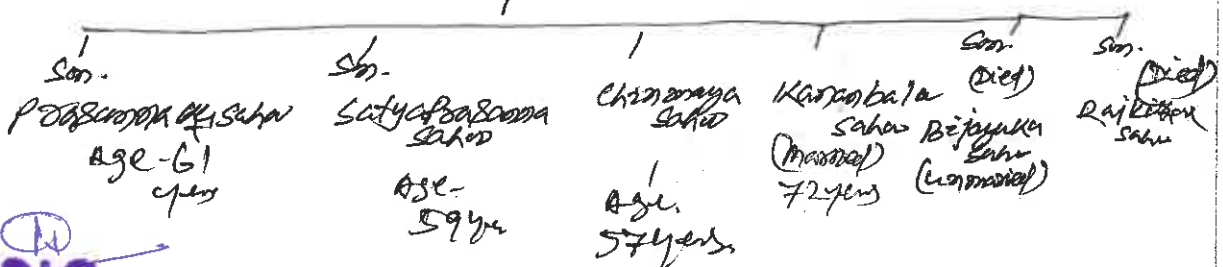 Son.
Prasanna Ku Sahu
Age-61
yers
Son.
Satya Prasanna
Sahoo
Age-
59 yer
Chinmaya
Sahoo
Age.
57 yers
Kananbala
Sahoo
(Married)
72 yers
Son.
(Died)
Sahu
(Unmarried)
Son.
(Died)
Rajkishor
Sahu